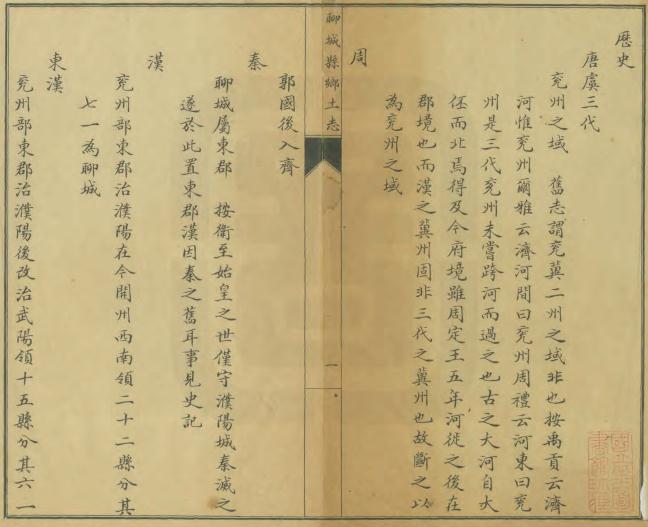 歷史
唐虞三代
兗州之域　舊志謂兗冀二州之域非也按禹貢云濟
河惟兗州爾雅云濟河間曰兗州周禮云河東曰兗
州是三代兗州未嘗跨河而過之也古之大河自大
伾而北焉得及今府境雖周定王五年河徙之後在
郡境也而漢之冀州固非三代之冀州也故斷之以
為兗州之域
周
聊城縣鄉土志
一
郭國後入齊
秦
聊城屬東郡　按衛至始皇之世僅守濮陽城秦滅之
遂於此置東郡漢因秦之舊耳事見史記
漢
兗州部東郡治濮陽在今開州西南領二十二縣分其
七一為聊城
東漢
兗州部東郡治濮陽後改治武陽領十五縣分其六一